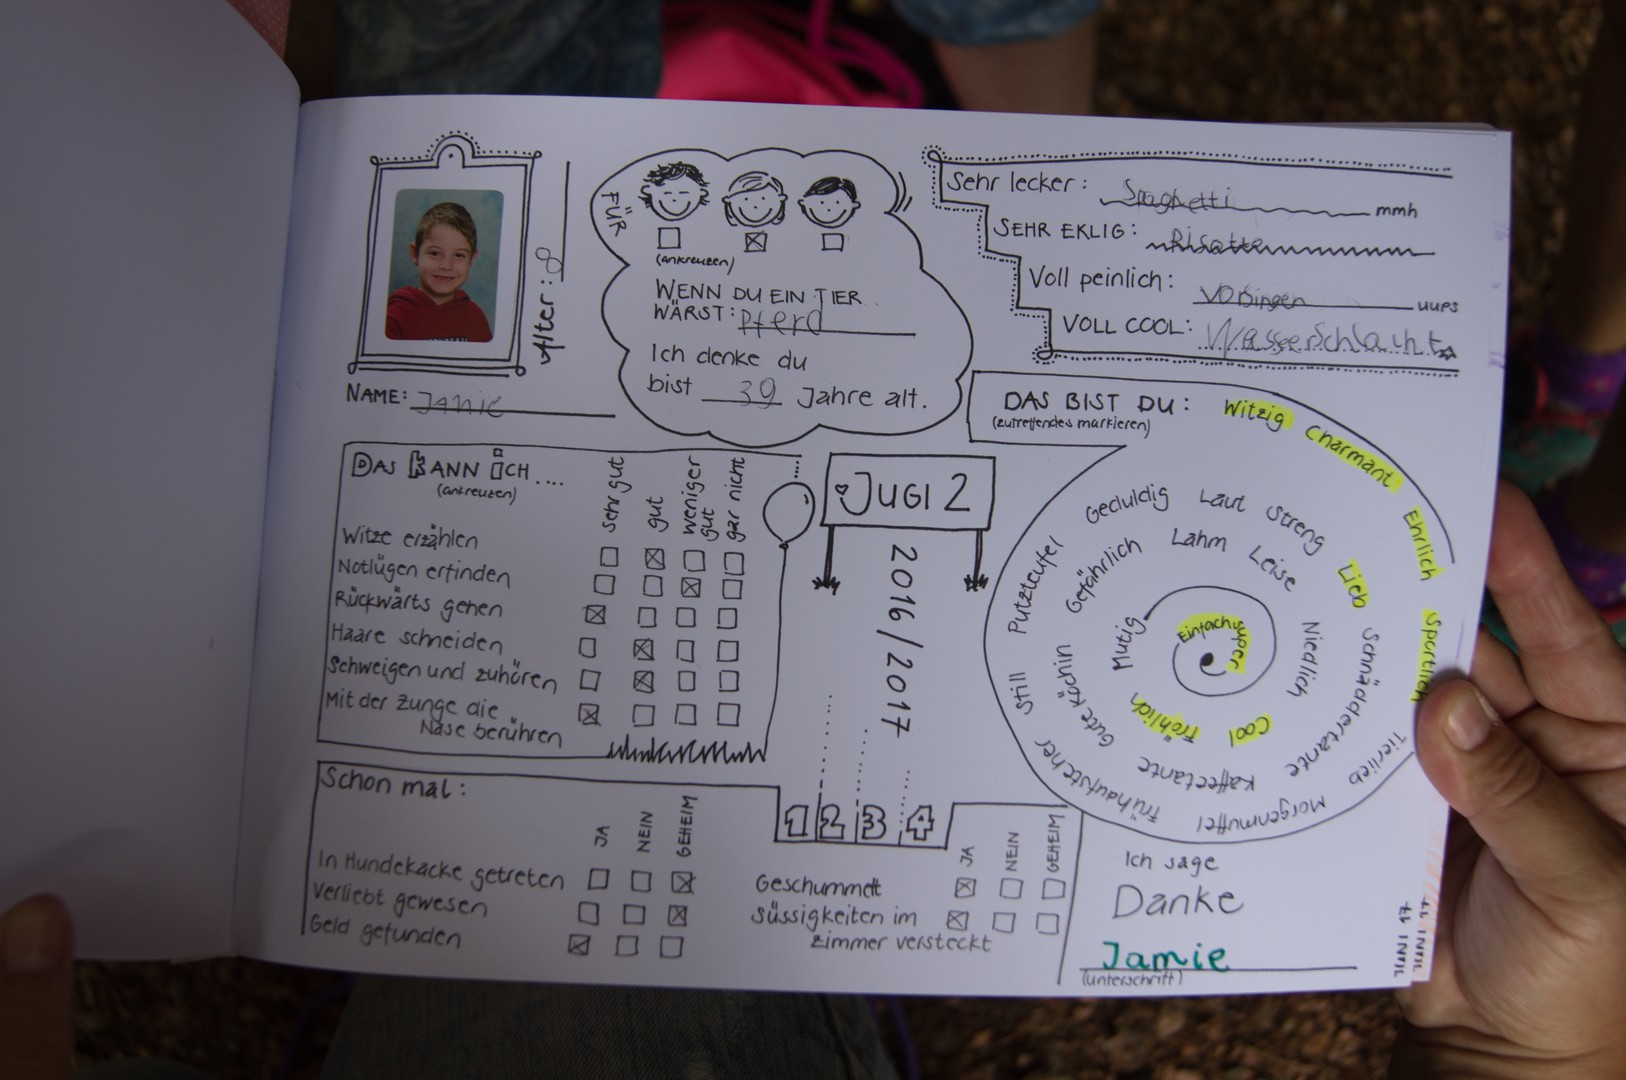 Alter: 8
NAME: Jamie
FÜR
(ankreuzen)
WENN DU EIN TIER
WÄRST: Pferd
Ich denke du
bist 39 Jahre alt.
Sehr lecker: Spaghetti mmh
SEHR EKLIG: Risotto
Voll peinlich: Vorsingen uups
VOLL COOL: Wasserschlacht
DAS KANN ICH....
(ankreuzen)
sehr gut
gut
weniger gut
gar nicht
Witze erzählen
Notlügen erfinden
Rückwärts gehen
Haare schneiden
Schweigen und zuhören
Mit der Zunge die
Nase berühren
JUGI 2
2016/2017
1 2 3 4
DAS BIST DU:
(zutreffendes markieren)
Witzig
Charmant
Ehrlich
Sportlich
Tierlieb
Morgenmuffel
Frühaufsteher
Still
Putzteufel
Geduldig
Laut
Streng
Lieb
Schnädertante
Kaffeetante
Gute Köchin
Gefährlich
Lahm
Leise
Niedlich
Cool
Fröhlich
Mutig
Einfach super
Schon mal:
JA
NEIN
GEHEIM
In Hundekacke getreten
Verliebt gewesen
Geld gefunden
JA
NEIN
GEHEIM
Geschummelt
Süssigkeiten im
Zimmer versteckt
Ich sage
Danke
Jamie
(unterschrift)